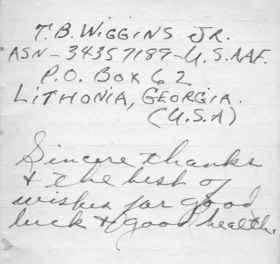 T. B. WIGGINS JR.
ASN-34357189-U.S.AAF.
P.O. BOX 62
LITHONIA, GEORGIA.
(U.S.A)
Sincere thanks
& the best of
wishes for good
luck & good health.